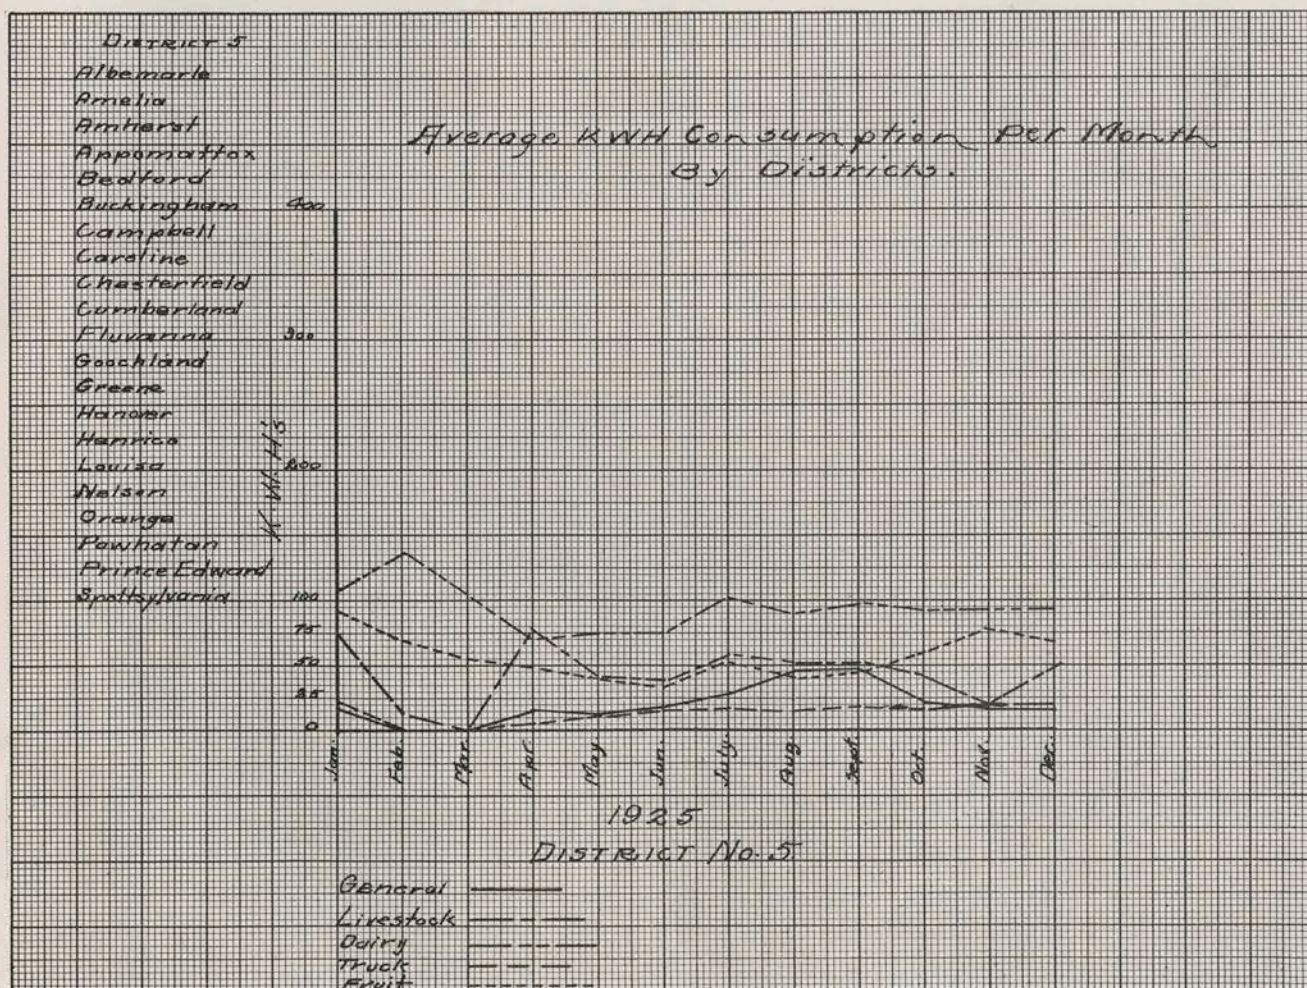 DISTRICT 5
Albemarle
Amelia
Amherst
Appomattox
Bedford
Buckingham
Campbell
Caroline
Chesterfield
Cumberland
Fluvanna
Goochland
Greene
Hanover
Henrico
Louisa
Nelson
Orange
Powhatan
Prince Edward
Spottsylvania
Average KWH Consumption Per Month
By Districts.
K.W.H's
400
300
200
100
75
50
25
0
Jan.
Feb.
Mar.
Apr.
May
Jun.
July.
Aug.
Sept.
Oct.
Nov.
Dec.
1925
DISTRICT No. 5
General
Livestock
Dairy
Truck
Fruit